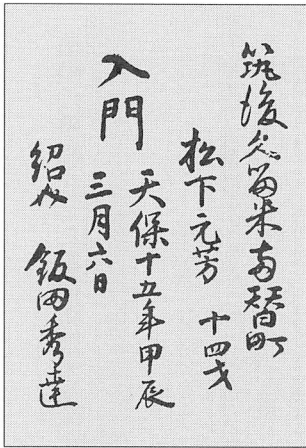 筑後久留米両替町
松下元芳 十四才
入門 天保十五年甲辰
三月六日
紹介 飯田秀達